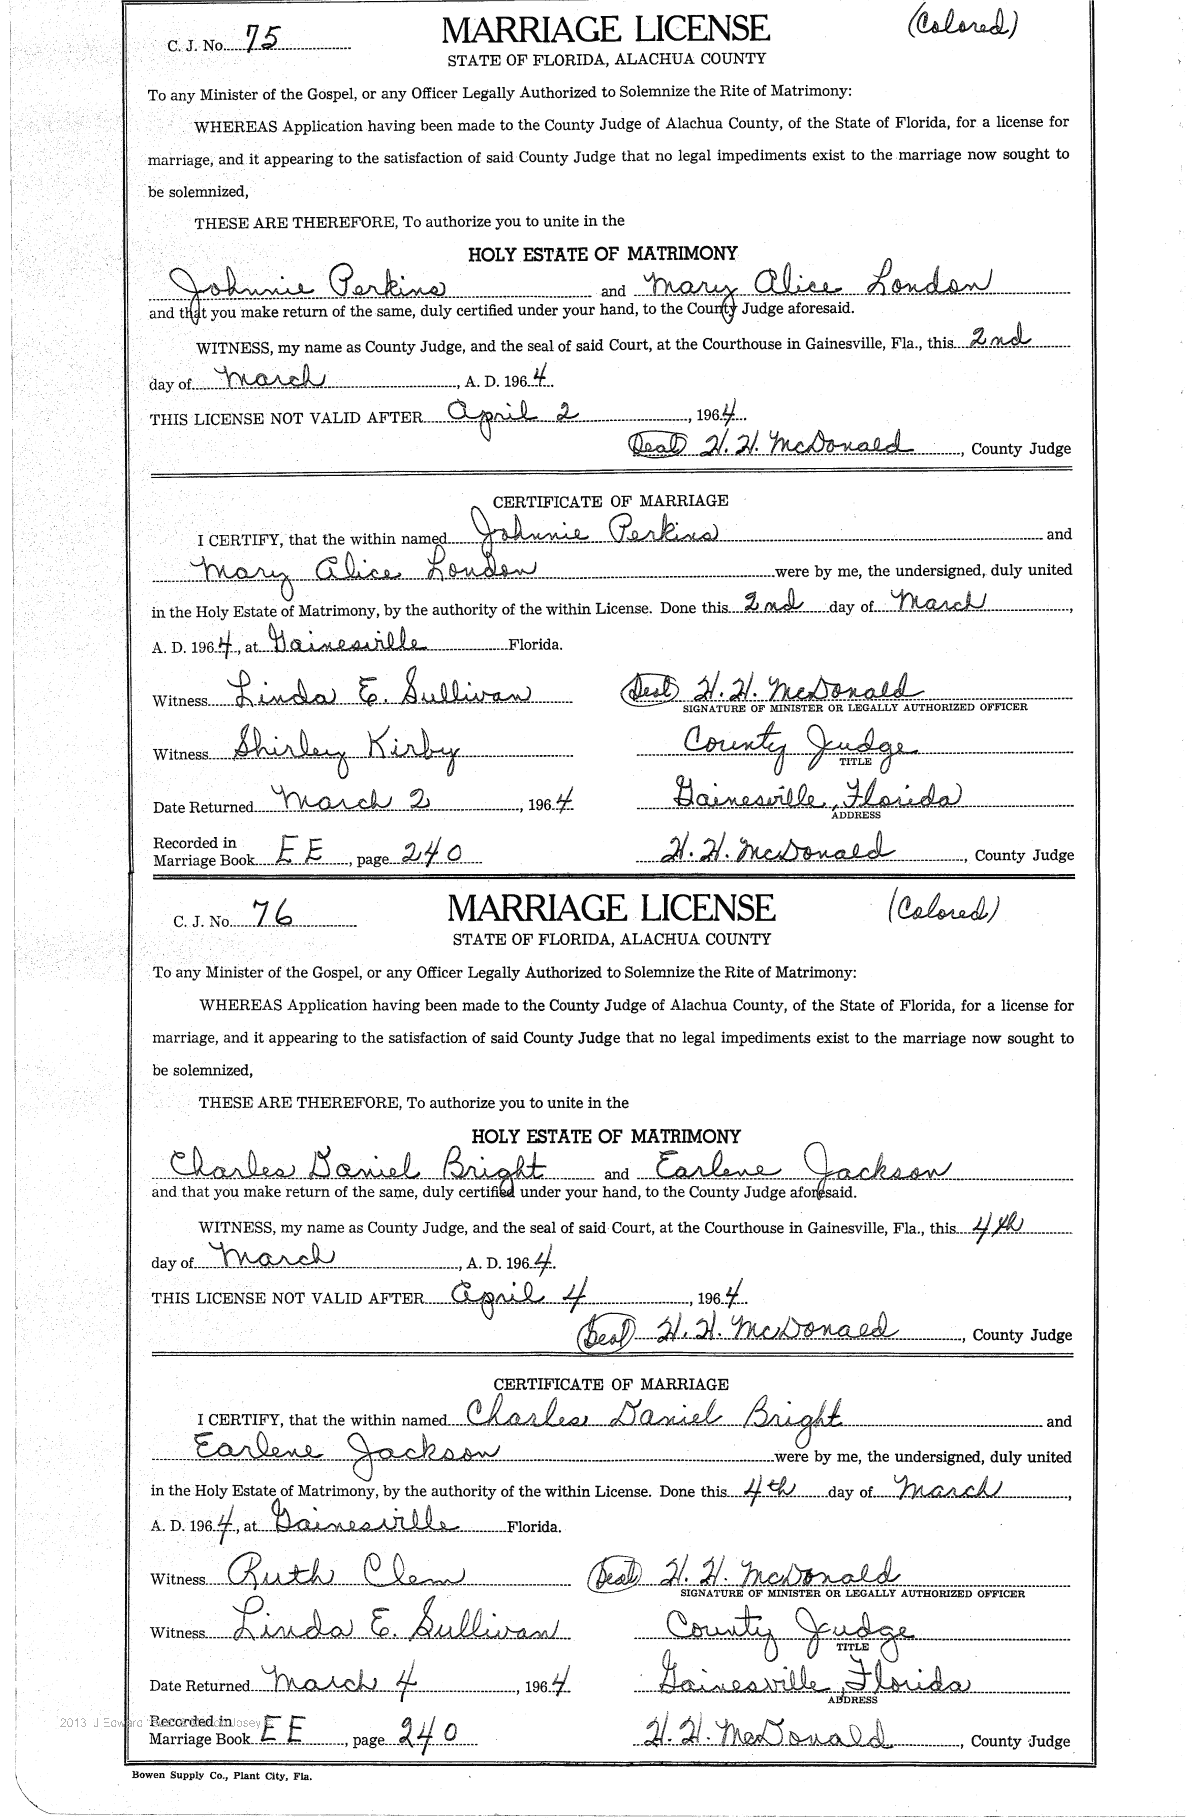 C. J. No. 75 MARRIAGE LICENSE (Colored)
STATE OF FLORIDA, ALACHUA COUNTY
To any Minister of the Gospel, or any Officer Legally Authorized to Solemnize the Rite of Matrimony:
WHEREAS Application having been made to the County Judge of Alachua County, of the State of Florida, for a license for
marriage, and it appearing to the satisfaction of said County Judge that no legal impediments exist to the marriage now sought to
be solemnized,
THESE ARE THEREFORE, To authorize you to unite in the
HOLY ESTATE OF MATRIMONY
Johnnie Perkins and Mary Alice London
and that you make return of the same, duly certified under your hand, to the County Judge aforesaid.
WITNESS, my name as County Judge, and the seal of said Court, at the Courthouse in Gainesville, Fla., this 2nd
day of March, A. D. 1964.
THIS LICENSE NOT VALID AFTER April 2, 1964
(Seal) H. H. McDonald, County Judge
CERTIFICATE OF MARRIAGE
I CERTIFY, that the within named Johnnie Perkins and
Mary Alice London were by me, the undersigned, duly united
in the Holy Estate of Matrimony, by the authority of the within License. Done this 2nd day of March,
A. D. 1964, at Gainesville Florida.
Witness Linda E. Sullivan (Seal) H. H. McDonald
SIGNATURE OF MINISTER OR LEGALLY AUTHORIZED OFFICER
Witness Shirley Kirby County Judge
TITLE
Date Returned March 2, 1964 Gainesville, Florida
ADDRESS
Recorded in
Marriage Book EE, page 240 H. H. McDonald, County Judge
C. J. No. 76 MARRIAGE LICENSE (Colored)
STATE OF FLORIDA, ALACHUA COUNTY
To any Minister of the Gospel, or any Officer Legally Authorized to Solemnize the Rite of Matrimony:
WHEREAS Application having been made to the County Judge of Alachua County, of the State of Florida, for a license for
marriage, and it appearing to the satisfaction of said County Judge that no legal impediments exist to the marriage now sought to
be solemnized,
THESE ARE THEREFORE, To authorize you to unite in the
HOLY ESTATE OF MATRIMONY
Charles Daniel Bright and Earlene Jackson
and that you make return of the same, duly certified under your hand, to the County Judge aforesaid.
WITNESS, my name as County Judge, and the seal of said Court, at the Courthouse in Gainesville, Fla., this 4th
day of March, A. D. 1964.
THIS LICENSE NOT VALID AFTER April 4, 1964
(Seal) H. H. McDonald, County Judge
CERTIFICATE OF MARRIAGE
I CERTIFY, that the within named Charles Daniel Bright and
Earlene Jackson were by me, the undersigned, duly united
in the Holy Estate of Matrimony, by the authority of the within License. Done this 4th day of March,
A. D. 1964, at Gainesville Florida.
Witness Ruth Clem (Seal) H. H. McDonald
SIGNATURE OF MINISTER OR LEGALLY AUTHORIZED OFFICER
Witness Linda E. Sullivan County Judge
TITLE
Date Returned March 4, 1964 Gainesville, Florida
ADDRESS
2013 J Edward Josey
Recorded in
Marriage Book EE, page 240 H. H. McDonald, County Judge
Bowen Supply Co., Plant City, Fla.